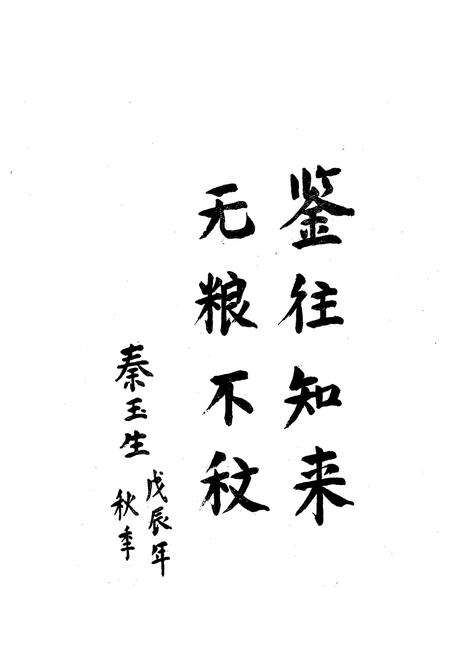 鉴往知来
无粮不稳
秦玉生
戊辰年
秋季